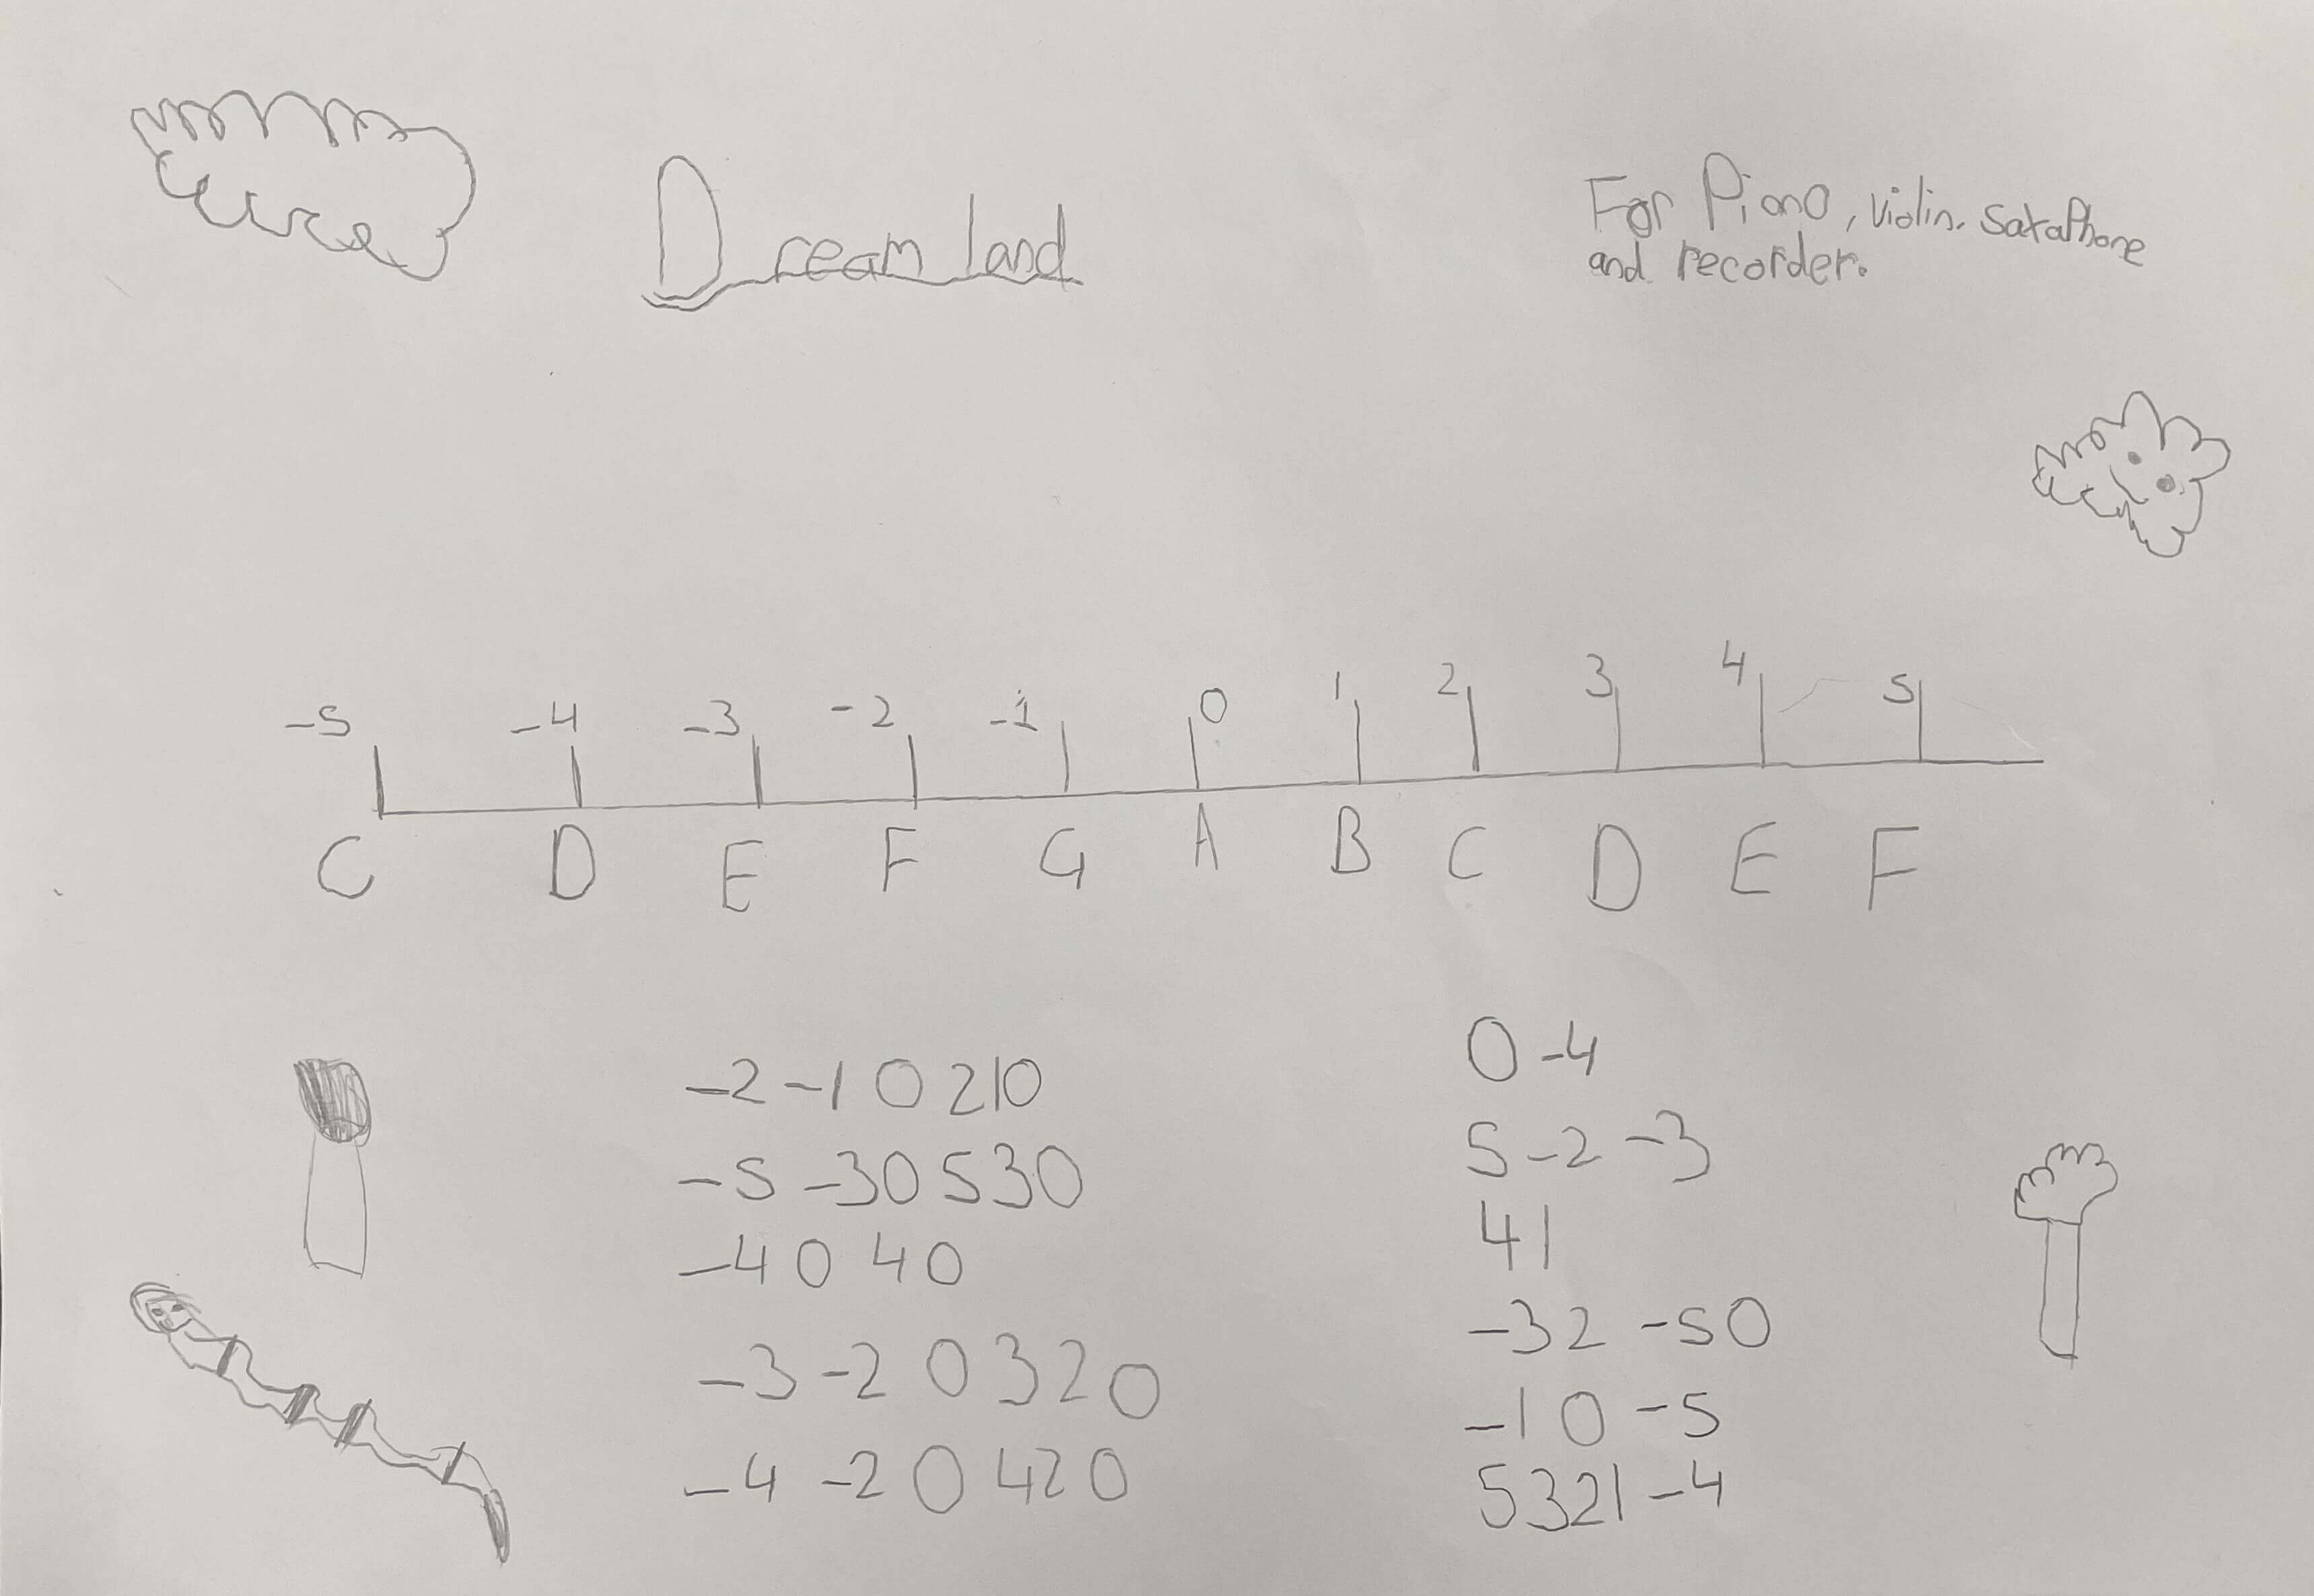 Dream land
For Piono, violin. saxaphone
and recorder.
-5 -4 -3 -2 -1 0 1 2 3 4 5
C D E F G A B C D E F
-2 -1 0 2 1 0
-5 -3 0 5 3 0
-4 0 4 0
-3 -2 0 3 2 0
-4 -2 0 4 2 0
0 -4
5 -2 -3
4 1
-3 2 -5 0
-1 0 -5
5 3 2 1 -4